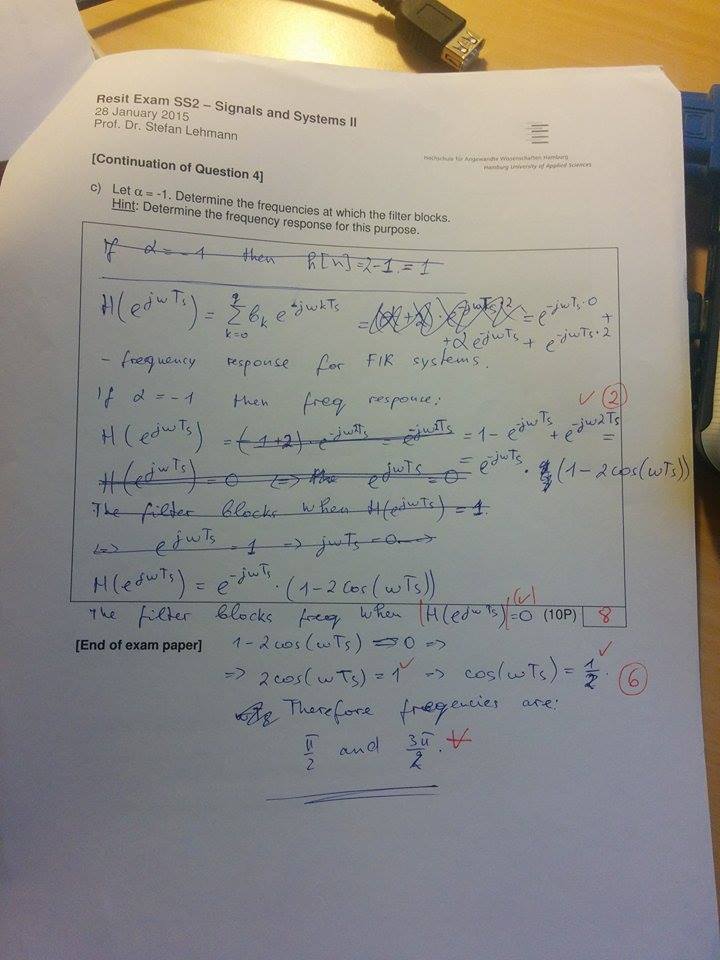 Resit Exam SS2 – Signals and Systems II
28 January 2015
Prof. Dr. Stefan Lehmann
Hochschule für Angewandte Wissenschaften Hamburg
Hamburg University of Applied Sciences
[Continuation of Question 4]
c) Let α = -1. Determine the frequencies at which the filter blocks.
Hint: Determine the frequency response for this purpose.
If α = -1 then h[n] = 2-1 = 1
H(e^jωTs) = Σ k=0 q b_k e^-jωkTs = = e^-jωTs·0 +
+α e^-jωTs + e^-jωTs·2
- frequency response for FIR systems.
If α = -1 then freq response: ✓ 2
H(e^jωTs) = (-1+2)·e^-jω2Ts = e^-jω2Ts = 1 - e^-jωTs + e^-jω2Ts =
H(e^jωTs) = 0 <=> the e^jωTs = 0 = e^-jωTs · (1-2cos(ωTs))
The filter blocks when H(e^jωTs) = 1.
<=> e^jωTs = 1 => jωTs = 0 =>
H(e^jωTs) = e^-jωTs · (1-2cos(ωTs))
The filter blocks freq when |H(e^jωTs)| = 0 (✓) (10P) 8
[End of exam paper] 1-2cos(ωTs) = 0 =>
=> 2cos(ωTs) = 1 ✓ => cos(ωTs) = 1/2. ✓ 6
Therefore freqencies are:
π/2 and 3π/2.